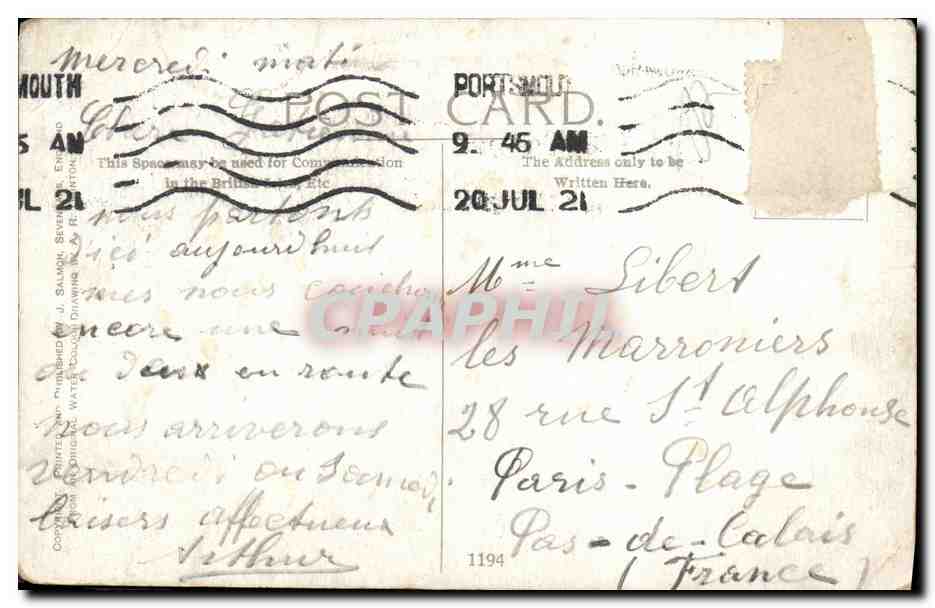 mercredi matin
MOUTH
PORTSMOUT
POST CARD.
5 AM
9. 45 AM
This Space may be used for Communication
in the British Isles, Etc
The Address only to be
Written Here.
UL 21
20 JUL 21
nous partons
d'ici aujourd'huit
mes nous
encore une nuit
ou deux en route
nous arriverons
vendredi ou samedi
baisers affectueux
Arthur
Mme Libert
les Marroniers
28 rue St Alphonse
Paris - Plage
Pas - de - Calais
(France)
1194
COPYRIGHT PRINTED AND PUBLISHED BY J. SALMON, SEVENOAKS, ENGLAND
FROM AN ORIGINAL WATER COLOUR DRAWING BY A. R. QUINTON
CPAPHIL